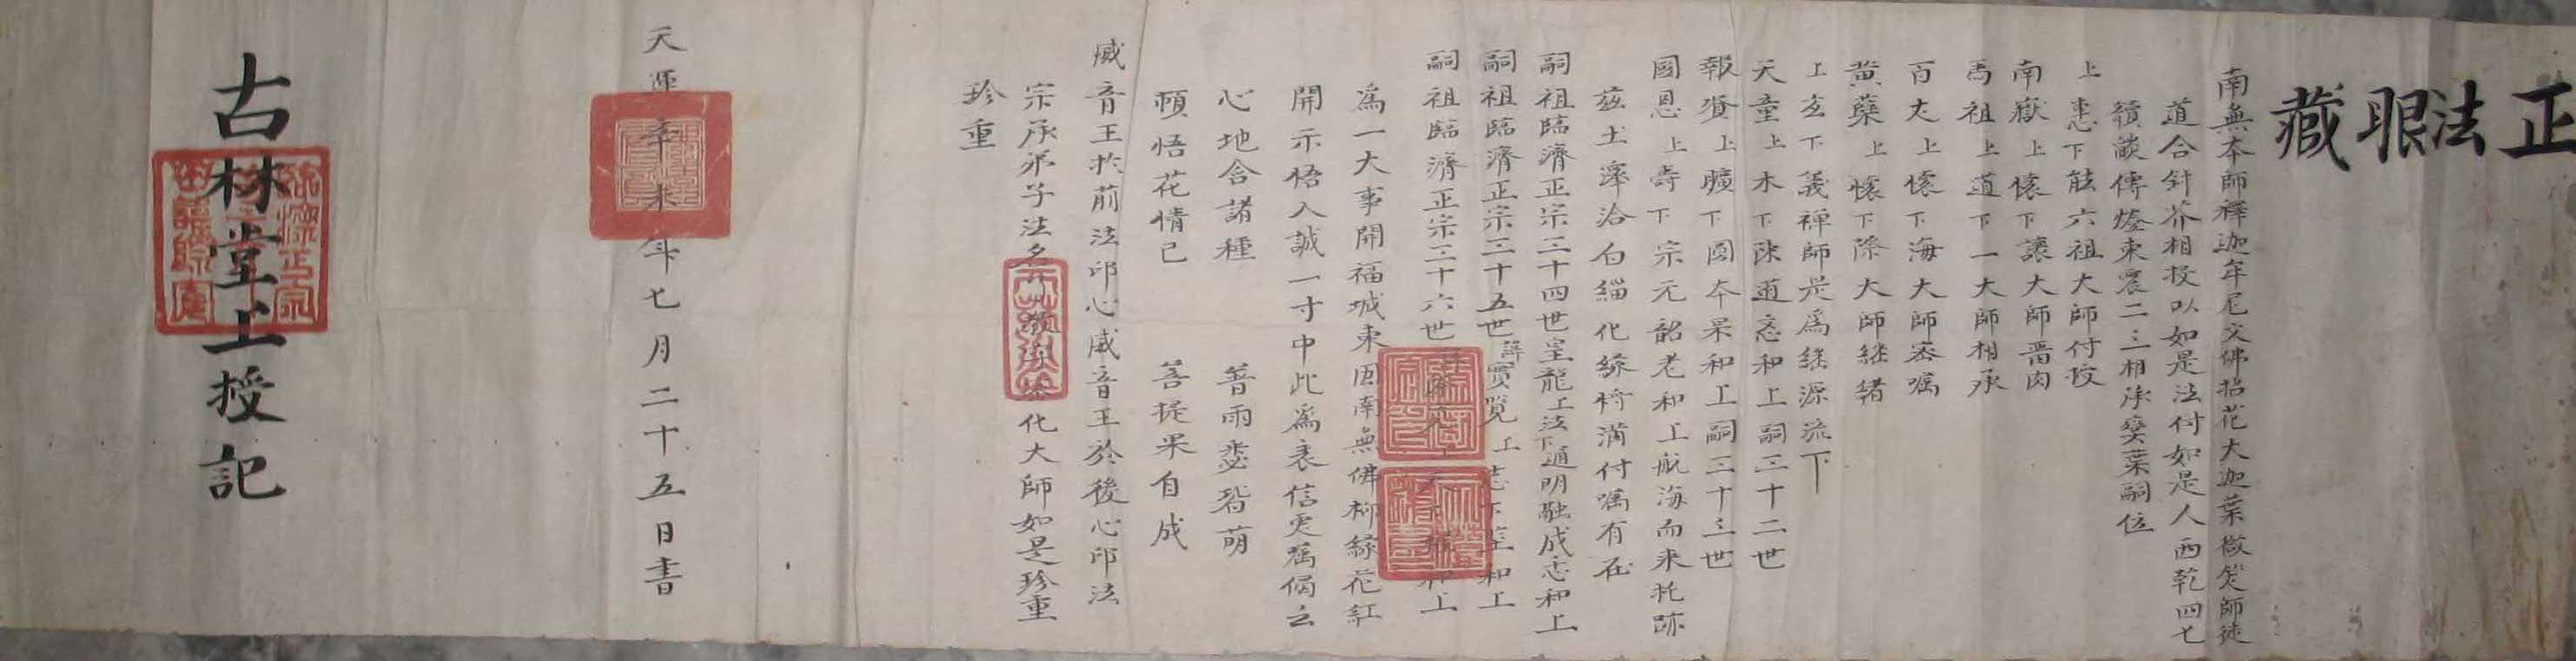 正法眼藏
南無本師釋迦牟尼文佛拈花大迦葉微笑師徒
道合針芥相投以如是法付如是人西乾四七
續燄傳燈東震二三相承奕葉嗣位
上惠下能六祖大師付
南嶽上懷下讓大師
馬祖上道下一大師相承
百丈上懷下海大師密囑
黃蘗上懷下際大師繼緒
上玄下義禪師是為繼源流下
天童上木下陳道忞和上嗣三十二世
報資上曠下圓本杲和上嗣三十三世
國恩上壽下宗元韶老和上航海而來托跡
茲土澤洽白緇化緣將滿付囑有在
嗣祖臨濟正宗三十四世皇龍上法下通明融成志和上
嗣祖臨濟正宗三十五世薛實覽上下和上
嗣祖臨濟正宗三十六世和上
為一大事開福城東因南無佛柳綠花紅
開示悟入誠一寸中此為表信更囑偈云
心地含諸種 普雨悉皆萌
頓悟花情已 菩提果自成
威音王於前法印心威音王於後心印法
宗承弟子法名化大師如是珍重
珍重
天運辛未年七月二十五日書
古林堂上授記